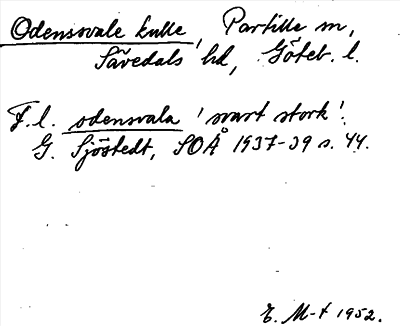 Odensvale kulle, Partille sn,
Sävedals hd, Göteb. l.
F. l. odensvala 'svart stork'.
G. Sjöstedt, SOÅ 1937-39 s. 44.
E. M-t 1952.